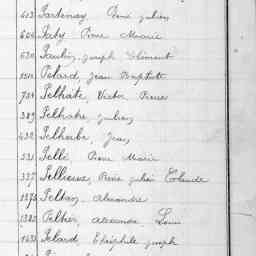 613 Pardenay, René Julien
604 Paty Pierre Marie
630 Paulin, Joseph Clément
1510 Pelard, Jean Baptiste
734 Pelhate, Victor Pierre
389 Pelhate, Julien
432 Pelherbe, Jean
531 Pelli Pierre Marie
337 Pellieux, René Julien Eolande
1275 Peltier, Alexandre
1382 Peltier, Alexandre Louis
1433 Pelard, Théophile Joseph